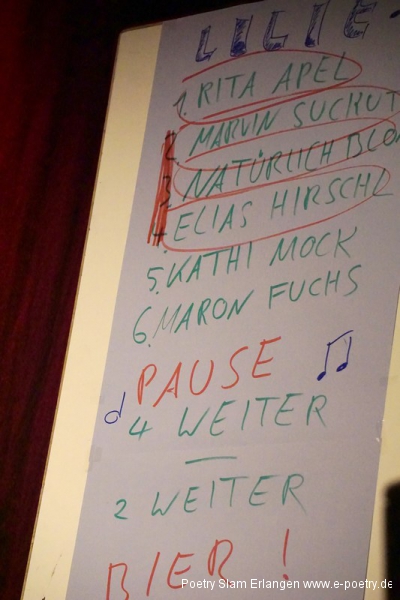 LILIE
1. RITA APEL
2. MARVIN SUCKUT
3. NATÜRLICH BLO
4. ELIAS HIRSCHL
5. KATHI MOCK
6. MARON FUCHS
PAUSE
4 WEITER
—
2 WEITER
BIER !
Poetry Slam Erlangen www.e-poetry.de